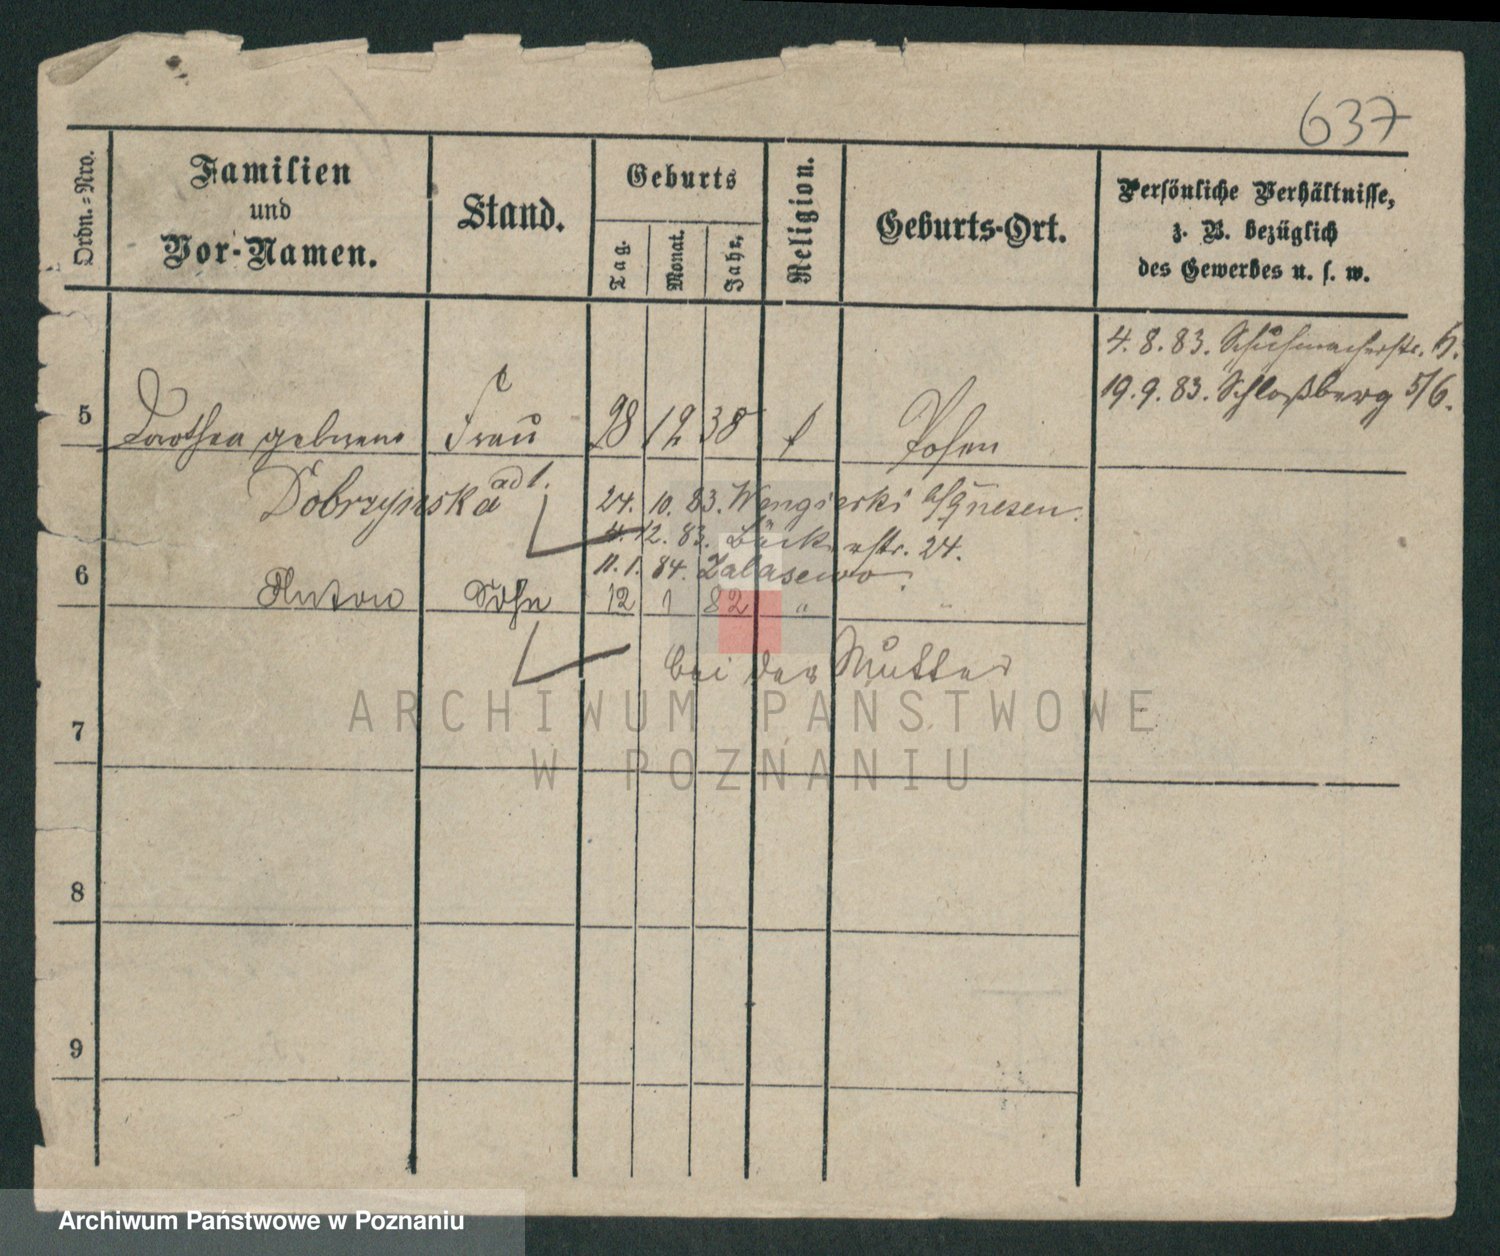 637
Ordn.-Nro.
Familien
und
Vor-Namen.
Stand.
Geburts
Tag.
Monat.
Jahr.
Religion.
Geburts-Ort.
Persönliche Verhältnisse,
z. B. bezüglich
des Gewerbes u. s. w.
4. 8. 83. Schuhmacherstr.
19. 9. 83. Schloßberg 5/6.
5 Dorothea geborene Frau 28 12 38 Posen
Dobrzynska ad 1. 24. 10. 83. Wengierki Gnesen.
12. 83. Bäckerstr. 24.
11. 1. 84. Zalasewo.
6 Anton Sohn 12 1 82 " "
bei der Mutter
7
8
9
ARCHIWUM PAŃSTWOWE
W POZNANIU
Archiwum Państwowe w Poznaniu